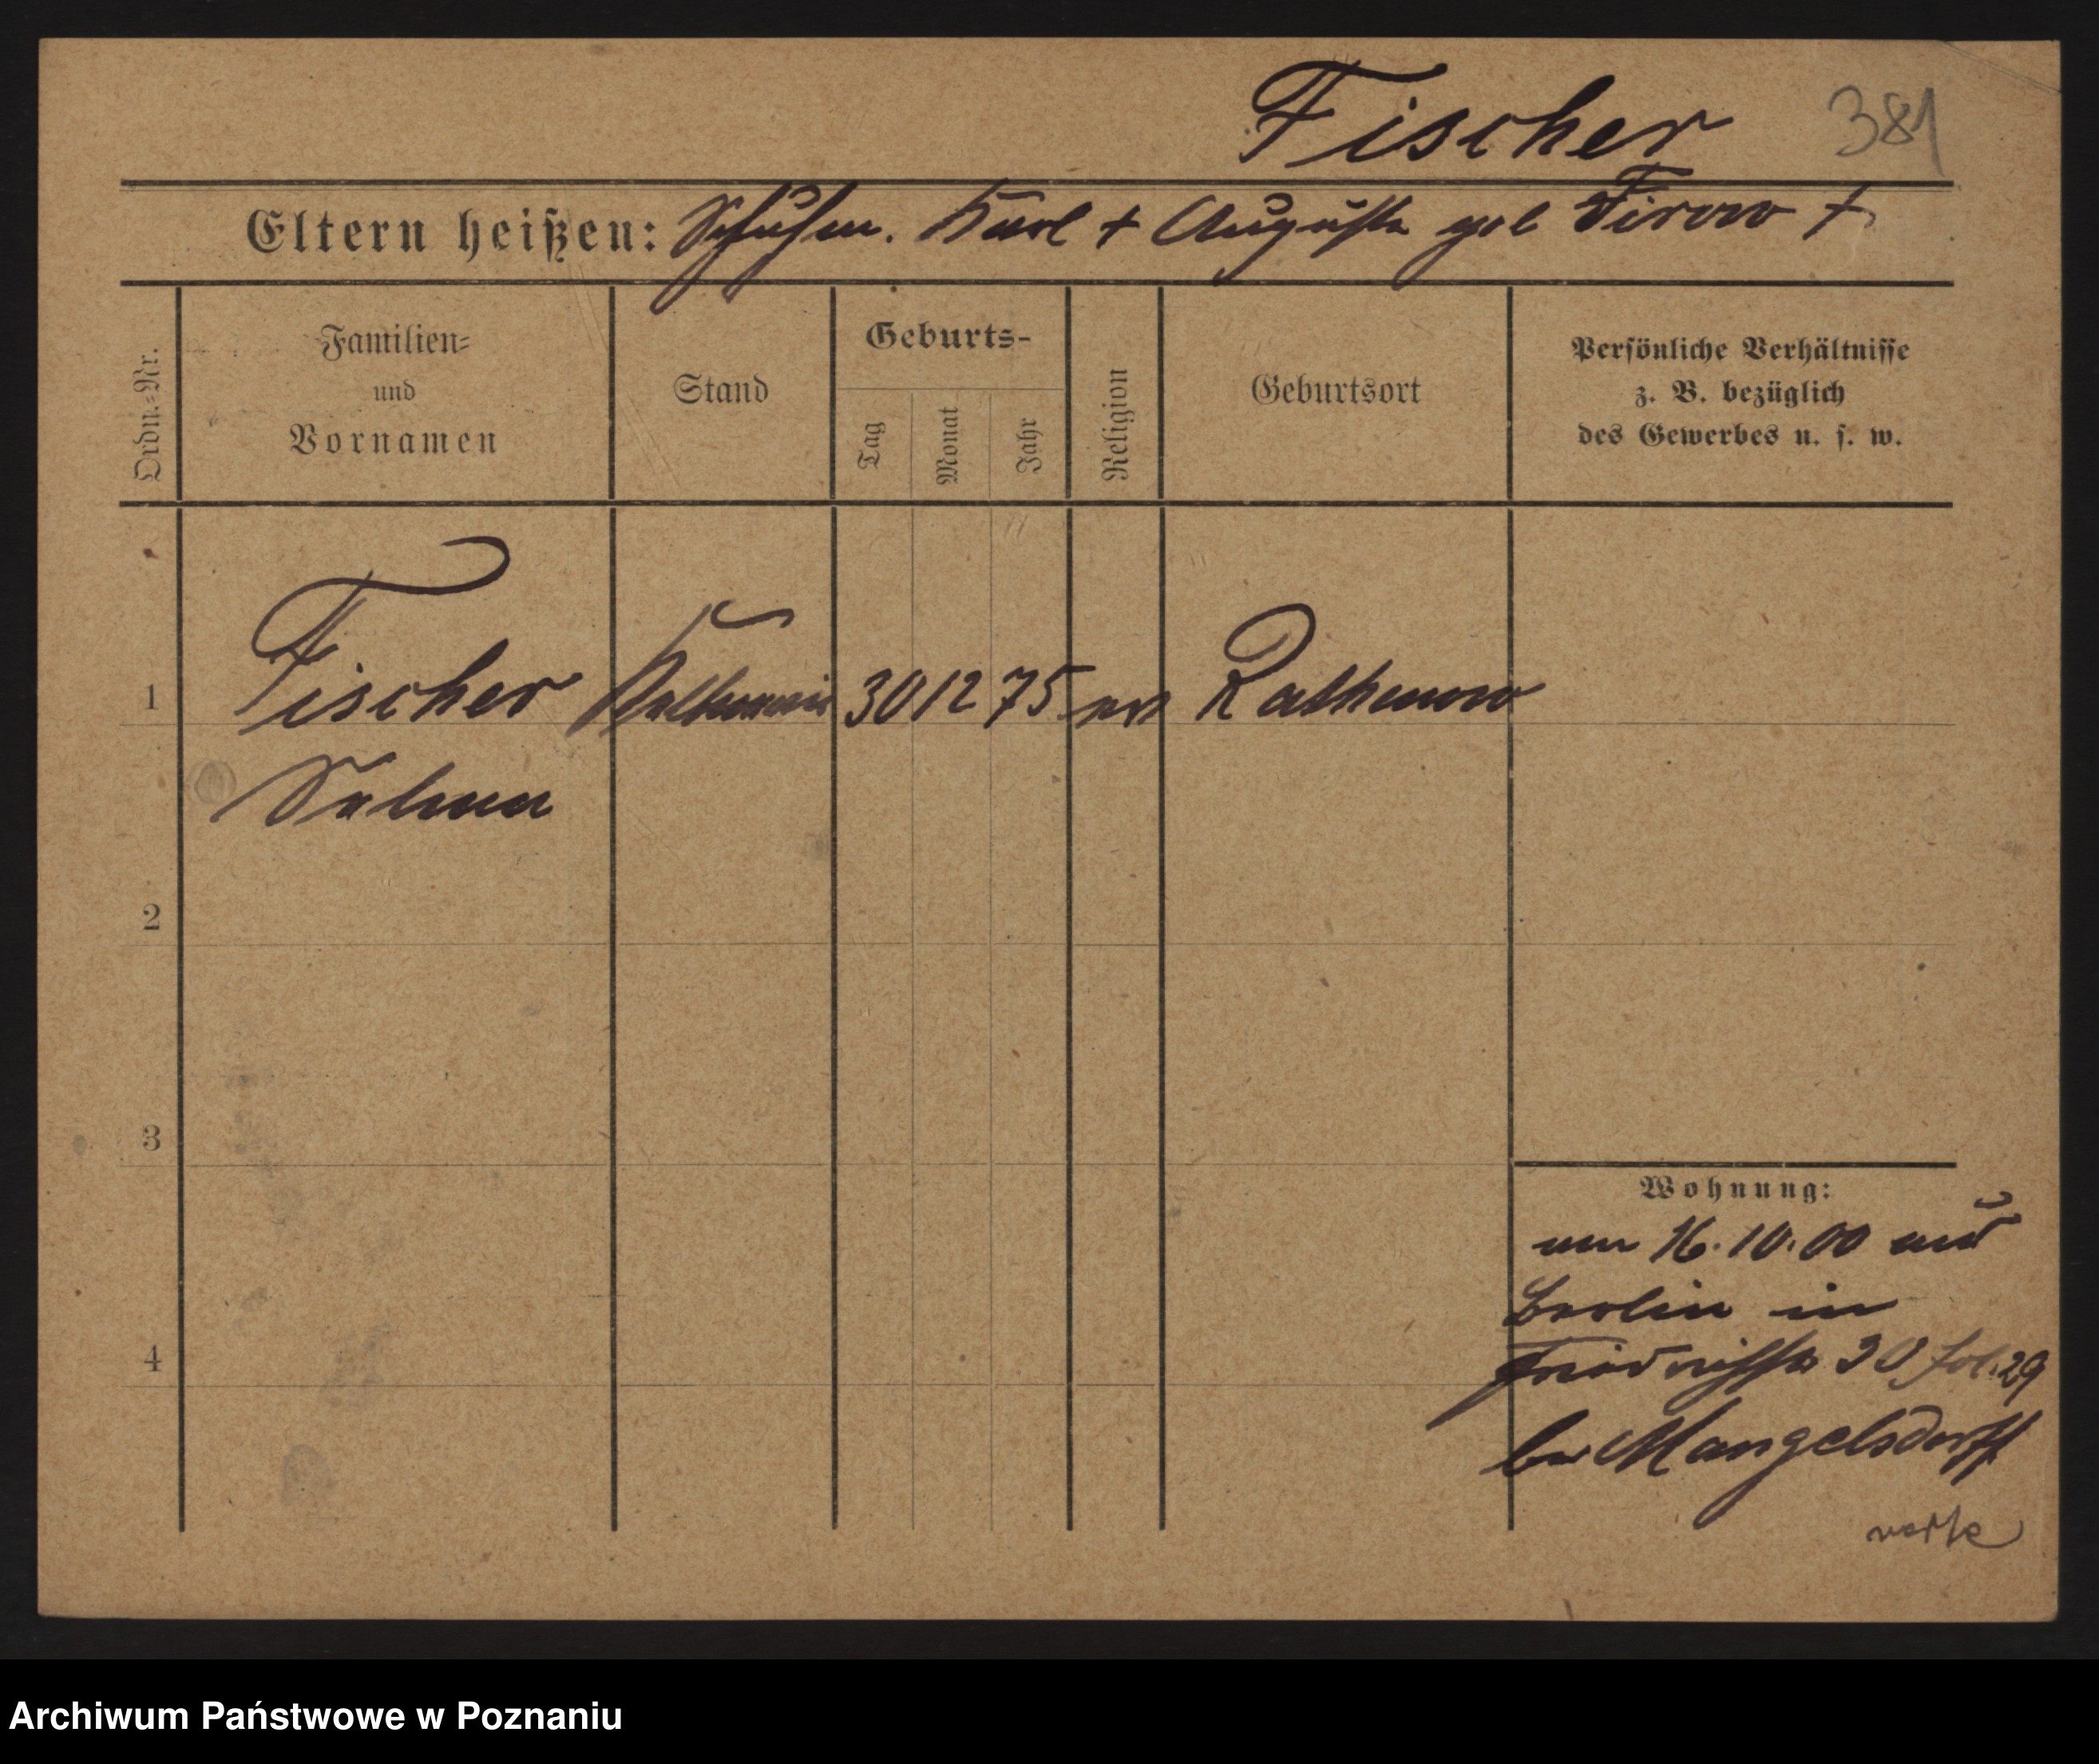 Fischer 381
Eltern heißen: Schuhm. Karl + Auguste geb Firow +
Ordn.-Nr.
Familien-
und
Vornamen
Stand
Geburts-
Tag
Monat
Jahr
Religion
Geburtsort
Persönliche Verhältnisse
z. B. bezüglich
des Gewerbes u. s. w.
1 Fischer 30 12 75 ev Rathenow
2
3
4
Wohnung:
16.10.00 aus
Berlin in
30 29
bei Mangelsdorff
Archiwum Państwowe w Poznaniu